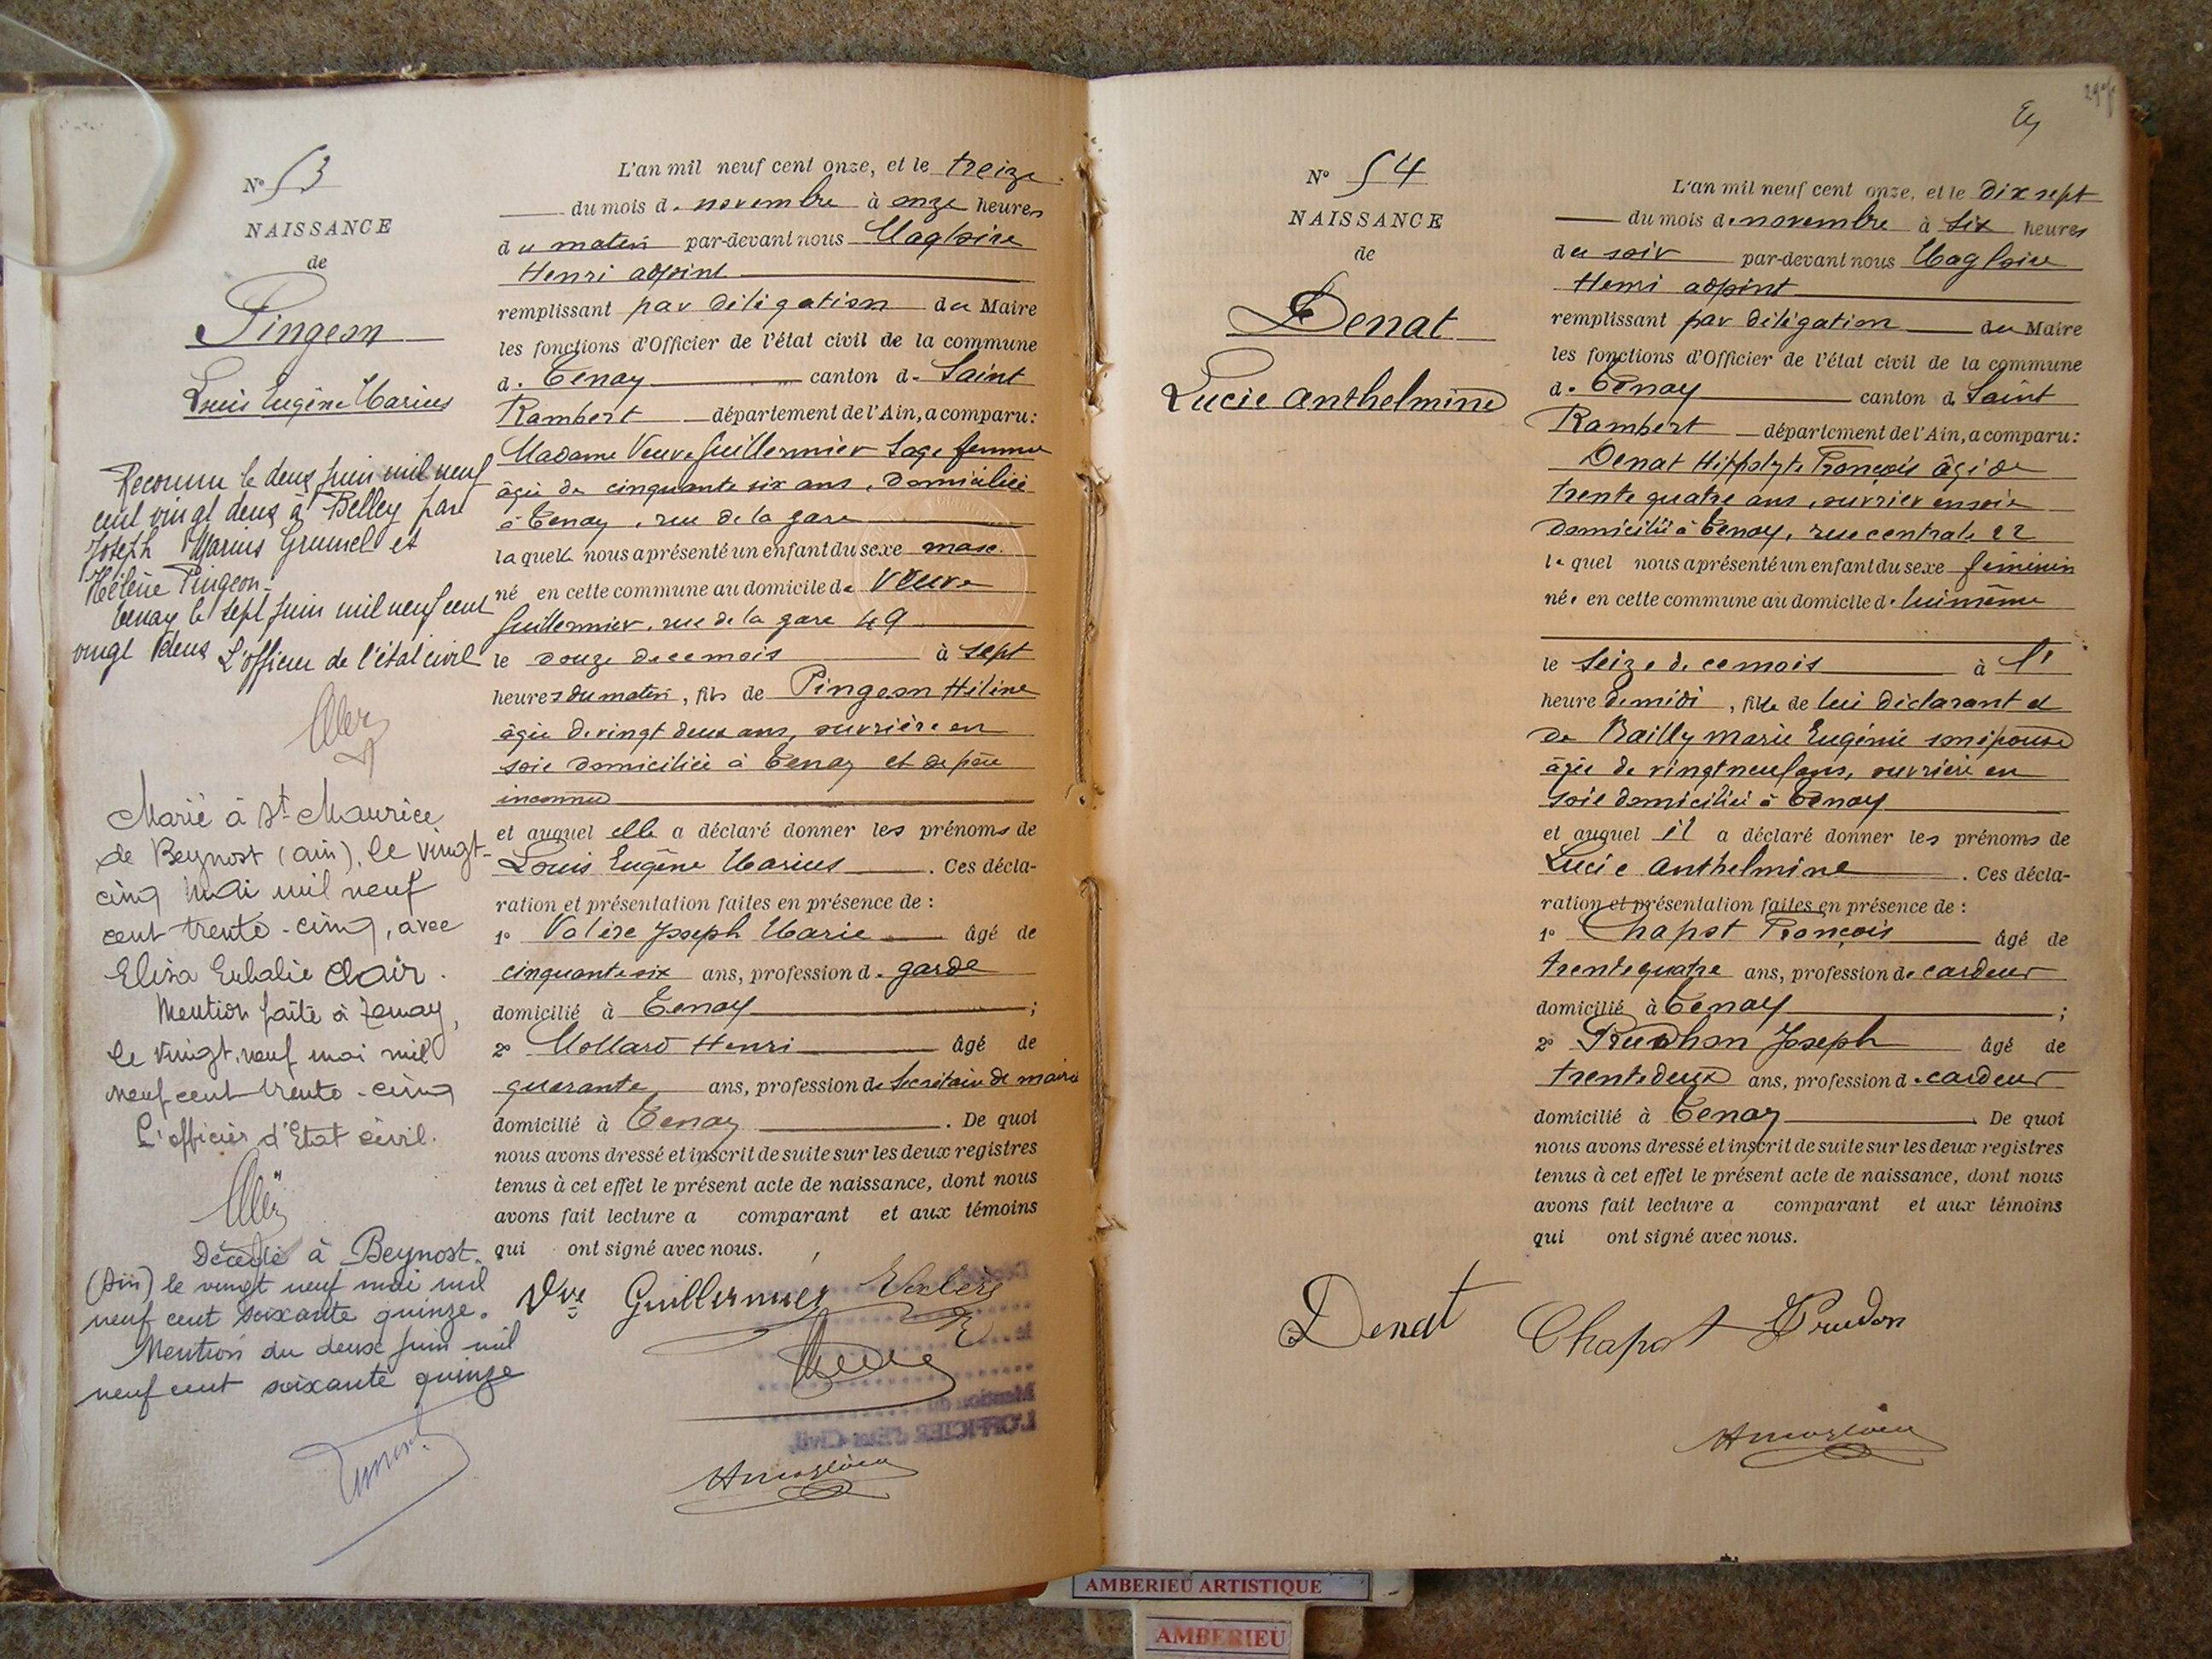 N° 53
NAISSANCE
de
Pingeon
Louis Eugène Marius
Reconnu le deux juin mil neuf
cent vingt deux à Belley par
Joseph Marius Grumel et
Hélène Pingeon.
Tenay le sept juin mil neuf cent
vingt deux L'officier de l'état civil
Marié à St Maurice
de Beynost (ain), le vingt-
cinq mai mil neuf
cent trente-cinq, avec
Elisa Eulalie Clair.
Mention faite à Tenay,
le vingt-neuf mai mil
neuf cent trente-cinq
L'officier d'Etat civil.
Décédé à Beynost
(Ain) le vingt neuf mai mil
neuf cent soixante quinze.
Mention du deux juin mil
neuf cent soixante quinze
L'an mil neuf cent onze, et le treize
du mois de novembre à onze heures
du matin par-devant nous Magloire
Henri adjoint
remplissant par délégation du Maire
les fonctions d'Officier de l'état civil de la commune
de Tenay canton de Saint
Rambert département de l'Ain, a comparu:
Madame Veuve Guillermier Sage femme
âgée de cinquante six ans, domiciliée
à Tenay, rue de la gare
laquelle nous a présenté un enfant du sexe masc.
né en cette commune au domicile de Veuve
Guillermier, rue de la gare 49
le douze de ce mois à sept
heures du matin, fils de Pingeon Hélène
âgée de vingt deux ans, ouvrière en
soie domiciliée à Tenay et de père
inconnu
et auquel elle a déclaré donner les prénoms de
Louis Eugène Marius. Ces décla-
ration et présentation faites en présence de :
1° Valère Joseph Marie âgé de
cinquante six ans, profession de garde
domicilié à Tenay ;
2° Mollard Henri âgé de
quarante ans, profession de Secrétaire de mairie
domicilié à Tenay. De quoi
nous avons dressé et inscrit de suite sur les deux registres
tenus à cet effet le présent acte de naissance, dont nous
avons fait lecture a comparant et aux témoins
qui ont signé avec nous.
Vve Guillermier Valère
L'OFFICIER d'Etat-Civil,
N° 54
NAISSANCE
de
Denat
Lucie Anthelmine
L'an mil neuf cent onze, et le dix sept
du mois de novembre à six heures
du soir par-devant nous Magloire
Henri adjoint
remplissant par délégation du Maire
les fonctions d'Officier de l'état civil de la commune
de Tenay canton de Saint
Rambert département de l'Ain, a comparu:
Denat Hippolyte François âgé de
trente quatre ans, ouvrier en soie
domicilié à Tenay, rue centrale 22
lequel nous a présenté un enfant du sexe féminin
née en cette commune au domicile de lui même
le seize de ce mois à 1
heure de midi, fille de lui déclarant et
de Bailly marie Eugénie son épouse
âgée de vingt neuf ans, ouvrière en
soie domiciliée à Tenay
et auquel il a déclaré donner les prénoms de
Lucie Anthelmine. Ces décla-
ration et présentation faites en présence de :
1° Chapot François âgé de
trente quatre ans, profession de cardeur
domicilié à Tenay ;
2° Prudhon Joseph âgé de
trente deux ans, profession de cardeur
domicilié à Tenay. De quoi
nous avons dressé et inscrit de suite sur les deux registres
tenus à cet effet le présent acte de naissance, dont nous
avons fait lecture a comparant et aux témoins
qui ont signé avec nous.
Denat Chapot Prudon
AMBERIEU ARTISTIQUE
AMBERIEU